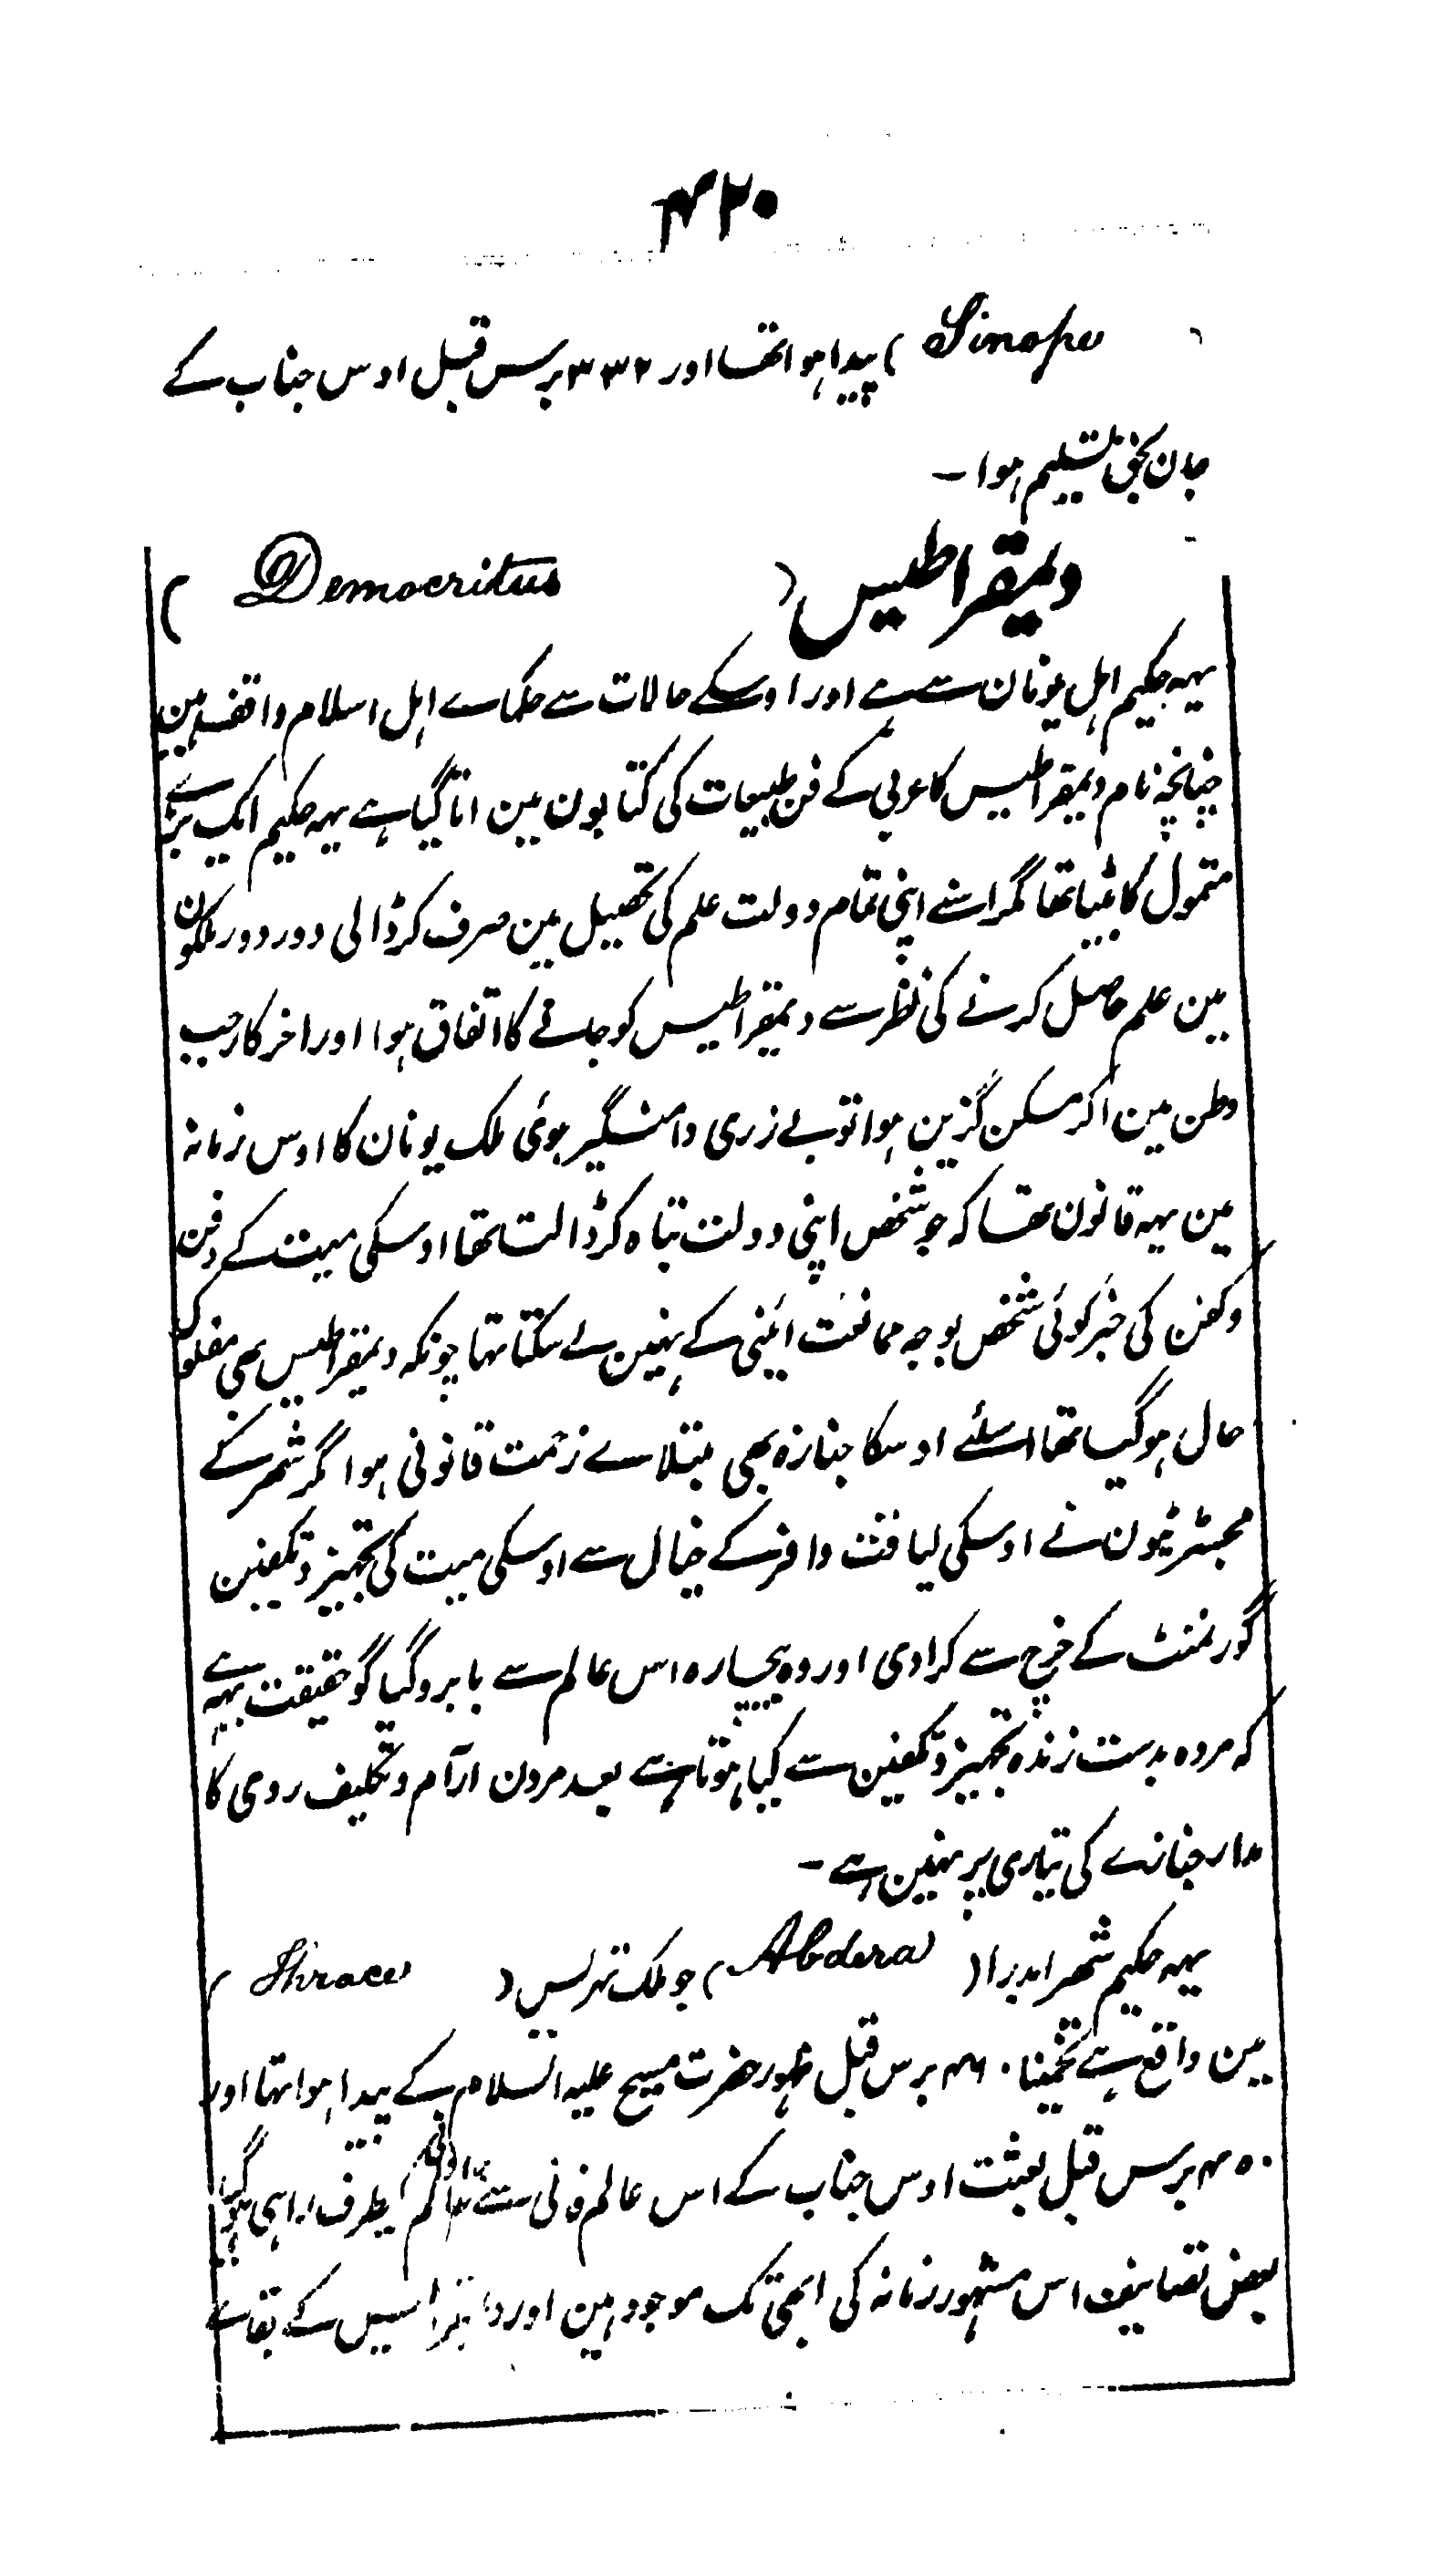 ۴۲۰
( Sinope ) پیدا ہوا تھا اور ۳۳۲ برس قبل اوس جناب کے
جان بحق تسلیم ہوا ۔
دیمقراطیس ( Democritus )
یہہ حکیم اہل یونان سے ہے اور اوسکے حالات سے حکماے اہل اسلام واقف ہین
چنانچہ نام دیمقراطیس کا عربی کے فن طبیعات کی کتابون مین اتا گیا ہے یہہ حکیم ایک بڑے
متمول کا بیٹا تھا مگر اسنے اپنی تمام دولت علم کی تحصیل مین صرف کر ڈالی دور دور ملکون
مین علم حاصل کرنے کی نظر سے دیمقراطیس کو جانے کا اتفاق ہوا اور اخر کار جب
وطن مین اکر مسکن گزین ہوا تو بے زری دامنگیر ہوئی ملک یونان کا اوس زمانہ
مین یہہ قانون تھا کہ جو شخص اپنی دولت تباہ کر ڈالتا تھا اوسکی میت کے دفن
و کفن کی خبر کوئی شخص بوجہ ممانعت ائینی کے نہین لے سکتا تھا چونکہ دیمقراطیس بھی مفلوک
حال ہو گیا تھا اسلئے اوسکا جنازہ بھی مبتلاے زحمت قانونی ہوا مگر شہر کے
مجسٹریٹون نے اوسکی لیاقت وافر کے خیال سے اوسکی میت کی تجہیز و تکفین
گورنمنٹ کے خرچ سے کرا دی اور وہ بیچارہ اس عالم سے بابرو گیا گو حقیقت یہہ ہے
کہ مردہ بدست زندہ تجہیز و تکفین سے کیا ہوتا ہے بعد مردن ارآم و تکلیف روحی کا
مدار جنازے کی تیاری پر نہین ہے ۔
یہہ حکیم شہر ابدرا ( Abdera ) جو ملک تہریس ( Thrace )
مین واقع ہے تخمینا ۴۶۰ برس قبل ظہور حضرت مسیح علیہ السلام کے پیدا ہوا تھا اور
۳۵۰ برس قبل بعثت اوس جناب کے اس عالم فانی سے عالم کیطرف راہی ہو گیا
بعض تصانیف اس مشہور زمانہ کی ابھی تک موجود ہین اور کے بقاے